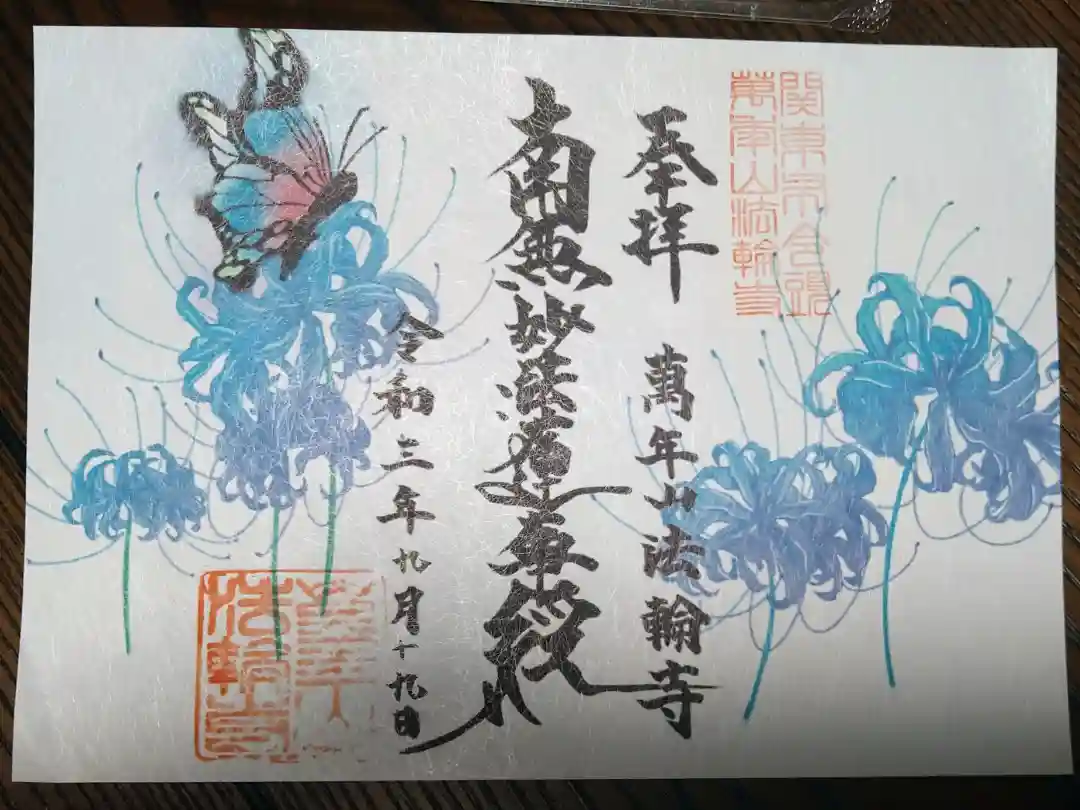 関東
萬年山法輪寺
奉拝　萬年山法輪寺
南無妙法蓮華経
令和三年九月十九日
萬年山
法輪寺